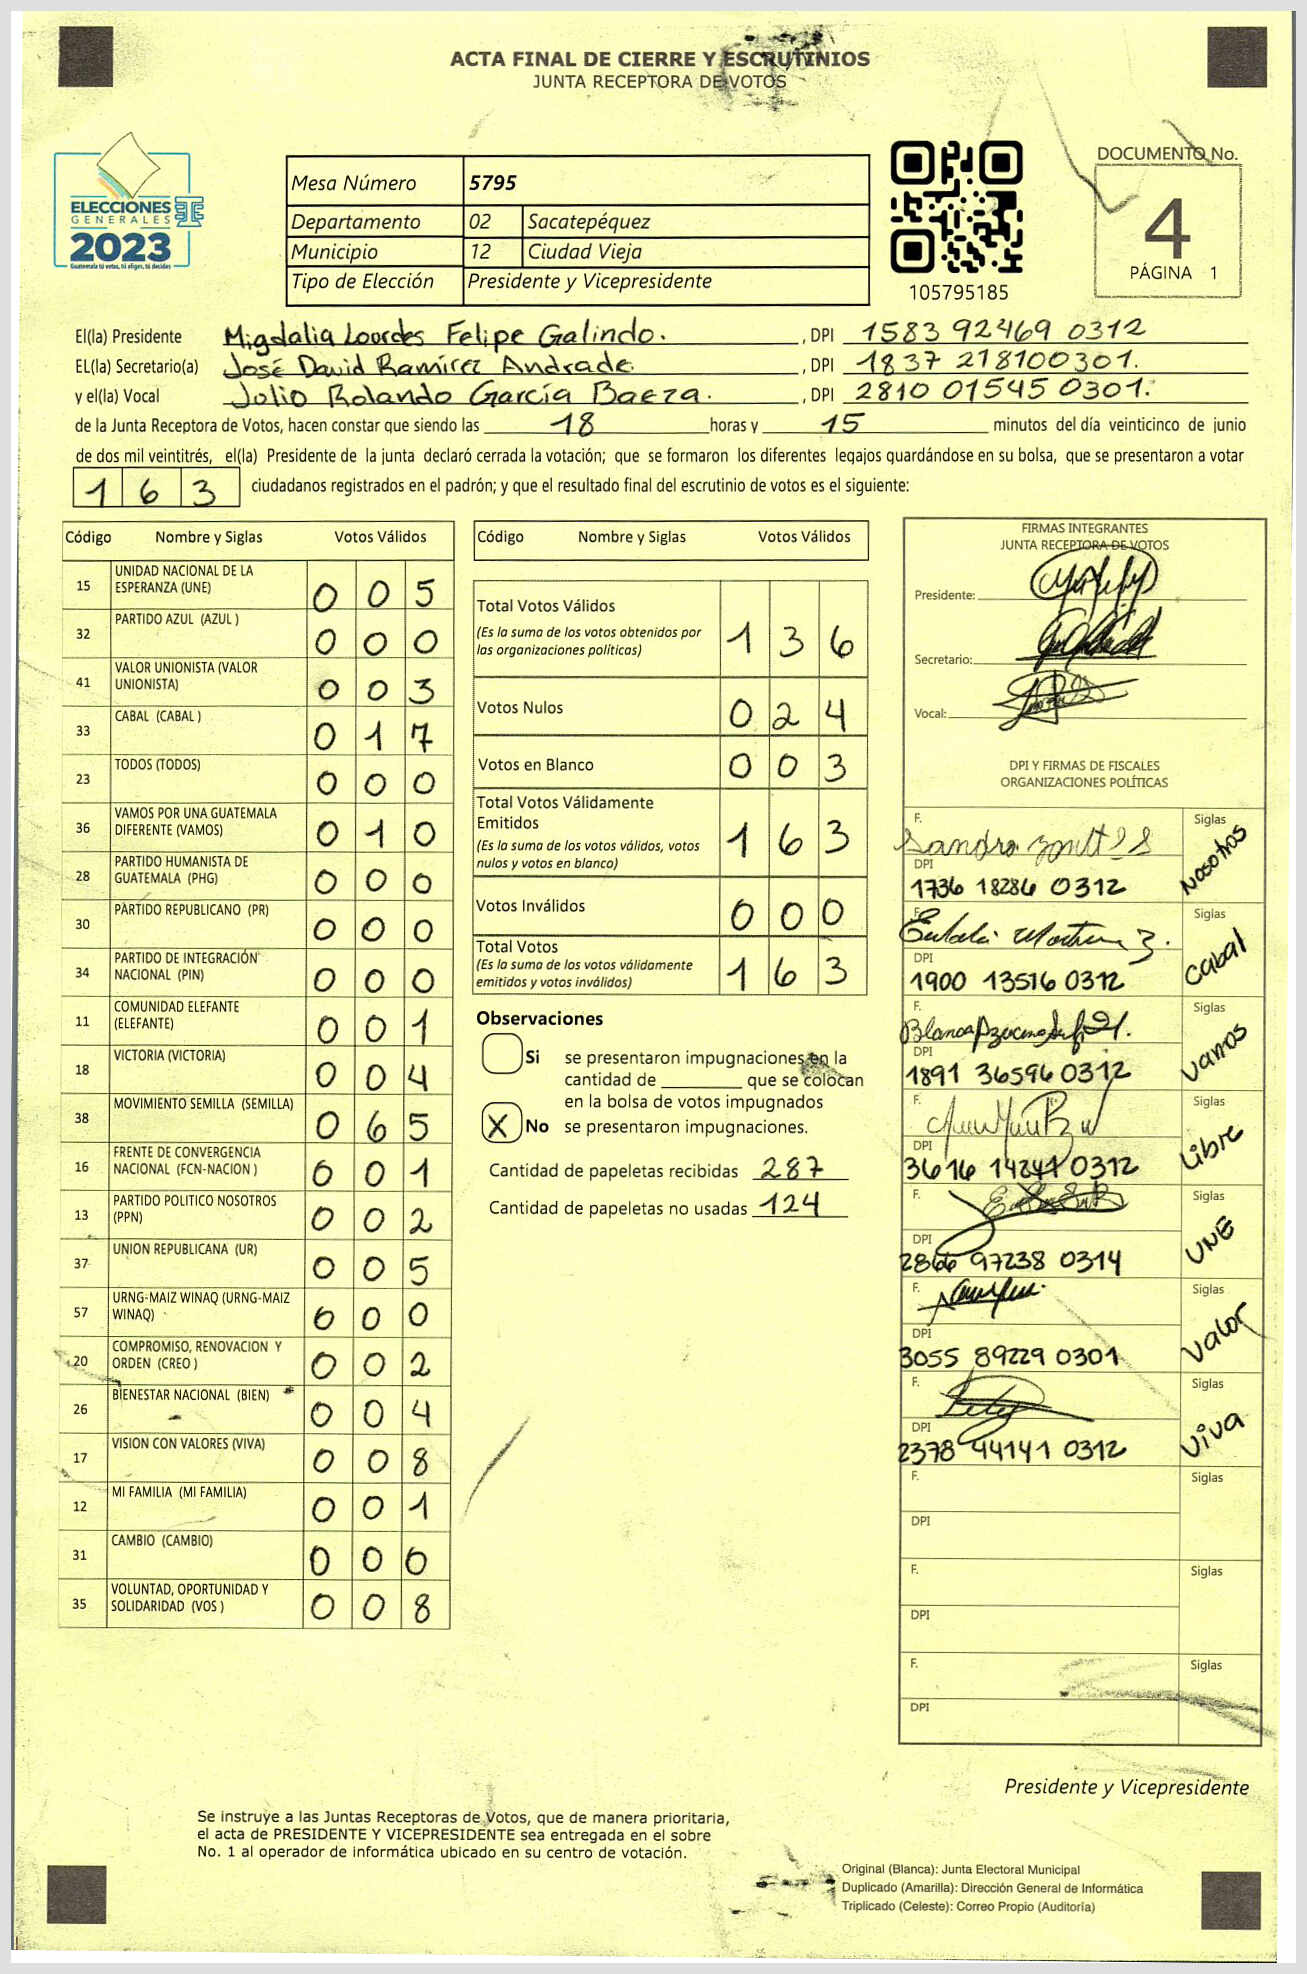 ACTA FINAL DE CIERRE Y ESCRUTINIOS
JUNTA RECEPTORA DE VOTOS
ELECCIONES
GENERALES
2023
Guatemala tú votas, tú eliges, tú decides
Mesa Número 5795
Departamento 02 Sacatepéquez
Municipio 12 Ciudad Vieja
Tipo de Elección Presidente y Vicepresidente
105795185
DOCUMENTO No.
4
PÁGINA 1
El(la) Presidente Migdalia Lourdes Felipe Galindo. , DPI 1583 92469 0312
EL(la) Secretario(a) José David Ramírez Andrade , DPI 1837 218100301.
y el(la) Vocal Julio Rolando García Baeza. , DPI 2810 01545 0301.
de la Junta Receptora de Votos, hacen constar que siendo las 18 horas y 15 minutos del día veinticinco de junio
de dos mil veintitrés, el(la) Presidente de la junta declaró cerrada la votación; que se formaron los diferentes legajos guardándose en su bolsa, que se presentaron a votar
163 ciudadanos registrados en el padrón; y que el resultado final del escrutinio de votos es el siguiente:
Código Nombre y Siglas Votos Válidos
15 UNIDAD NACIONAL DE LA ESPERANZA (UNE) 0 0 5
32 PARTIDO AZUL (AZUL ) 0 0 0
41 VALOR UNIONISTA (VALOR UNIONISTA) 0 0 3
33 CABAL (CABAL ) 0 1 7
23 TODOS (TODOS) 0 0 0
36 VAMOS POR UNA GUATEMALA DIFERENTE (VAMOS) 0 1 0
28 PARTIDO HUMANISTA DE GUATEMALA (PHG) 0 0 0
30 PARTIDO REPUBLICANO (PR) 0 0 0
34 PARTIDO DE INTEGRACIÓN NACIONAL (PIN) 0 0 0
11 COMUNIDAD ELEFANTE (ELEFANTE) 0 0 1
18 VICTORIA (VICTORIA) 0 0 4
38 MOVIMIENTO SEMILLA (SEMILLA) 0 6 5
16 FRENTE DE CONVERGENCIA NACIONAL (FCN-NACION ) 0 0 1
13 PARTIDO POLITICO NOSOTROS (PPN) 0 0 2
37 UNION REPUBLICANA (UR) 0 0 5
57 URNG-MAIZ WINAQ (URNG-MAIZ WINAQ) 0 0 0
20 COMPROMISO, RENOVACION Y ORDEN (CREO ) 0 0 2
26 BIENESTAR NACIONAL (BIEN) 0 0 4
17 VISION CON VALORES (VIVA) 0 0 8
12 MI FAMILIA (MI FAMILIA) 0 0 1
31 CAMBIO (CAMBIO) 0 0 0
35 VOLUNTAD, OPORTUNIDAD Y SOLIDARIDAD (VOS ) 0 0 8
Código Nombre y Siglas Votos Válidos
Total Votos Válidos 1 3 6
(Es la suma de los votos obtenidos por
las organizaciones políticas)
Votos Nulos 0 2 4
Votos en Blanco 0 0 3
Total Votos Válidamente
Emitidos 1 6 3
(Es la suma de los votos válidos, votos
nulos y votos en blanco)
Votos Inválidos 0 0 0
Total Votos 1 6 3
(Es la suma de los votos válidamente
emitidos y votos inválidos)
Observaciones
Si se presentaron impugnaciones en la
cantidad de ________ que se colocan
en la bolsa de votos impugnados
X No se presentaron impugnaciones.
Cantidad de papeletas recibidas 287
Cantidad de papeletas no usadas 124
FIRMAS INTEGRANTES
JUNTA RECEPTORA DE VOTOS
Presidente:
Secretario:
Vocal:
DPI Y FIRMAS DE FISCALES
ORGANIZACIONES POLÍTICAS
F. Sandra Siglas
DPI Nosotros
1736 18286 0312
F. Siglas
DPI Cabal
1900 13516 0312
F. Blanca Siglas
DPI Vamos
1891 36596 0312
F. Siglas
DPI Libre
3616 14241 0312
F. Siglas
DPI UNE
2866 97238 0314
F. Siglas
DPI Valor
3055 89229 0301
F. Siglas
DPI Viva
2378 44141 0312
F. Siglas
DPI
F. Siglas
DPI
F. Siglas
DPI
Presidente y Vicepresidente
Se instruye a las Juntas Receptoras de Votos, que de manera prioritaria,
el acta de PRESIDENTE Y VICEPRESIDENTE sea entregada en el sobre
No. 1 al operador de informática ubicado en su centro de votación.
Original (Blanca): Junta Electoral Municipal
Duplicado (Amarilla): Dirección General de Informática
Triplicado (Celeste): Correo Propio (Auditoría)